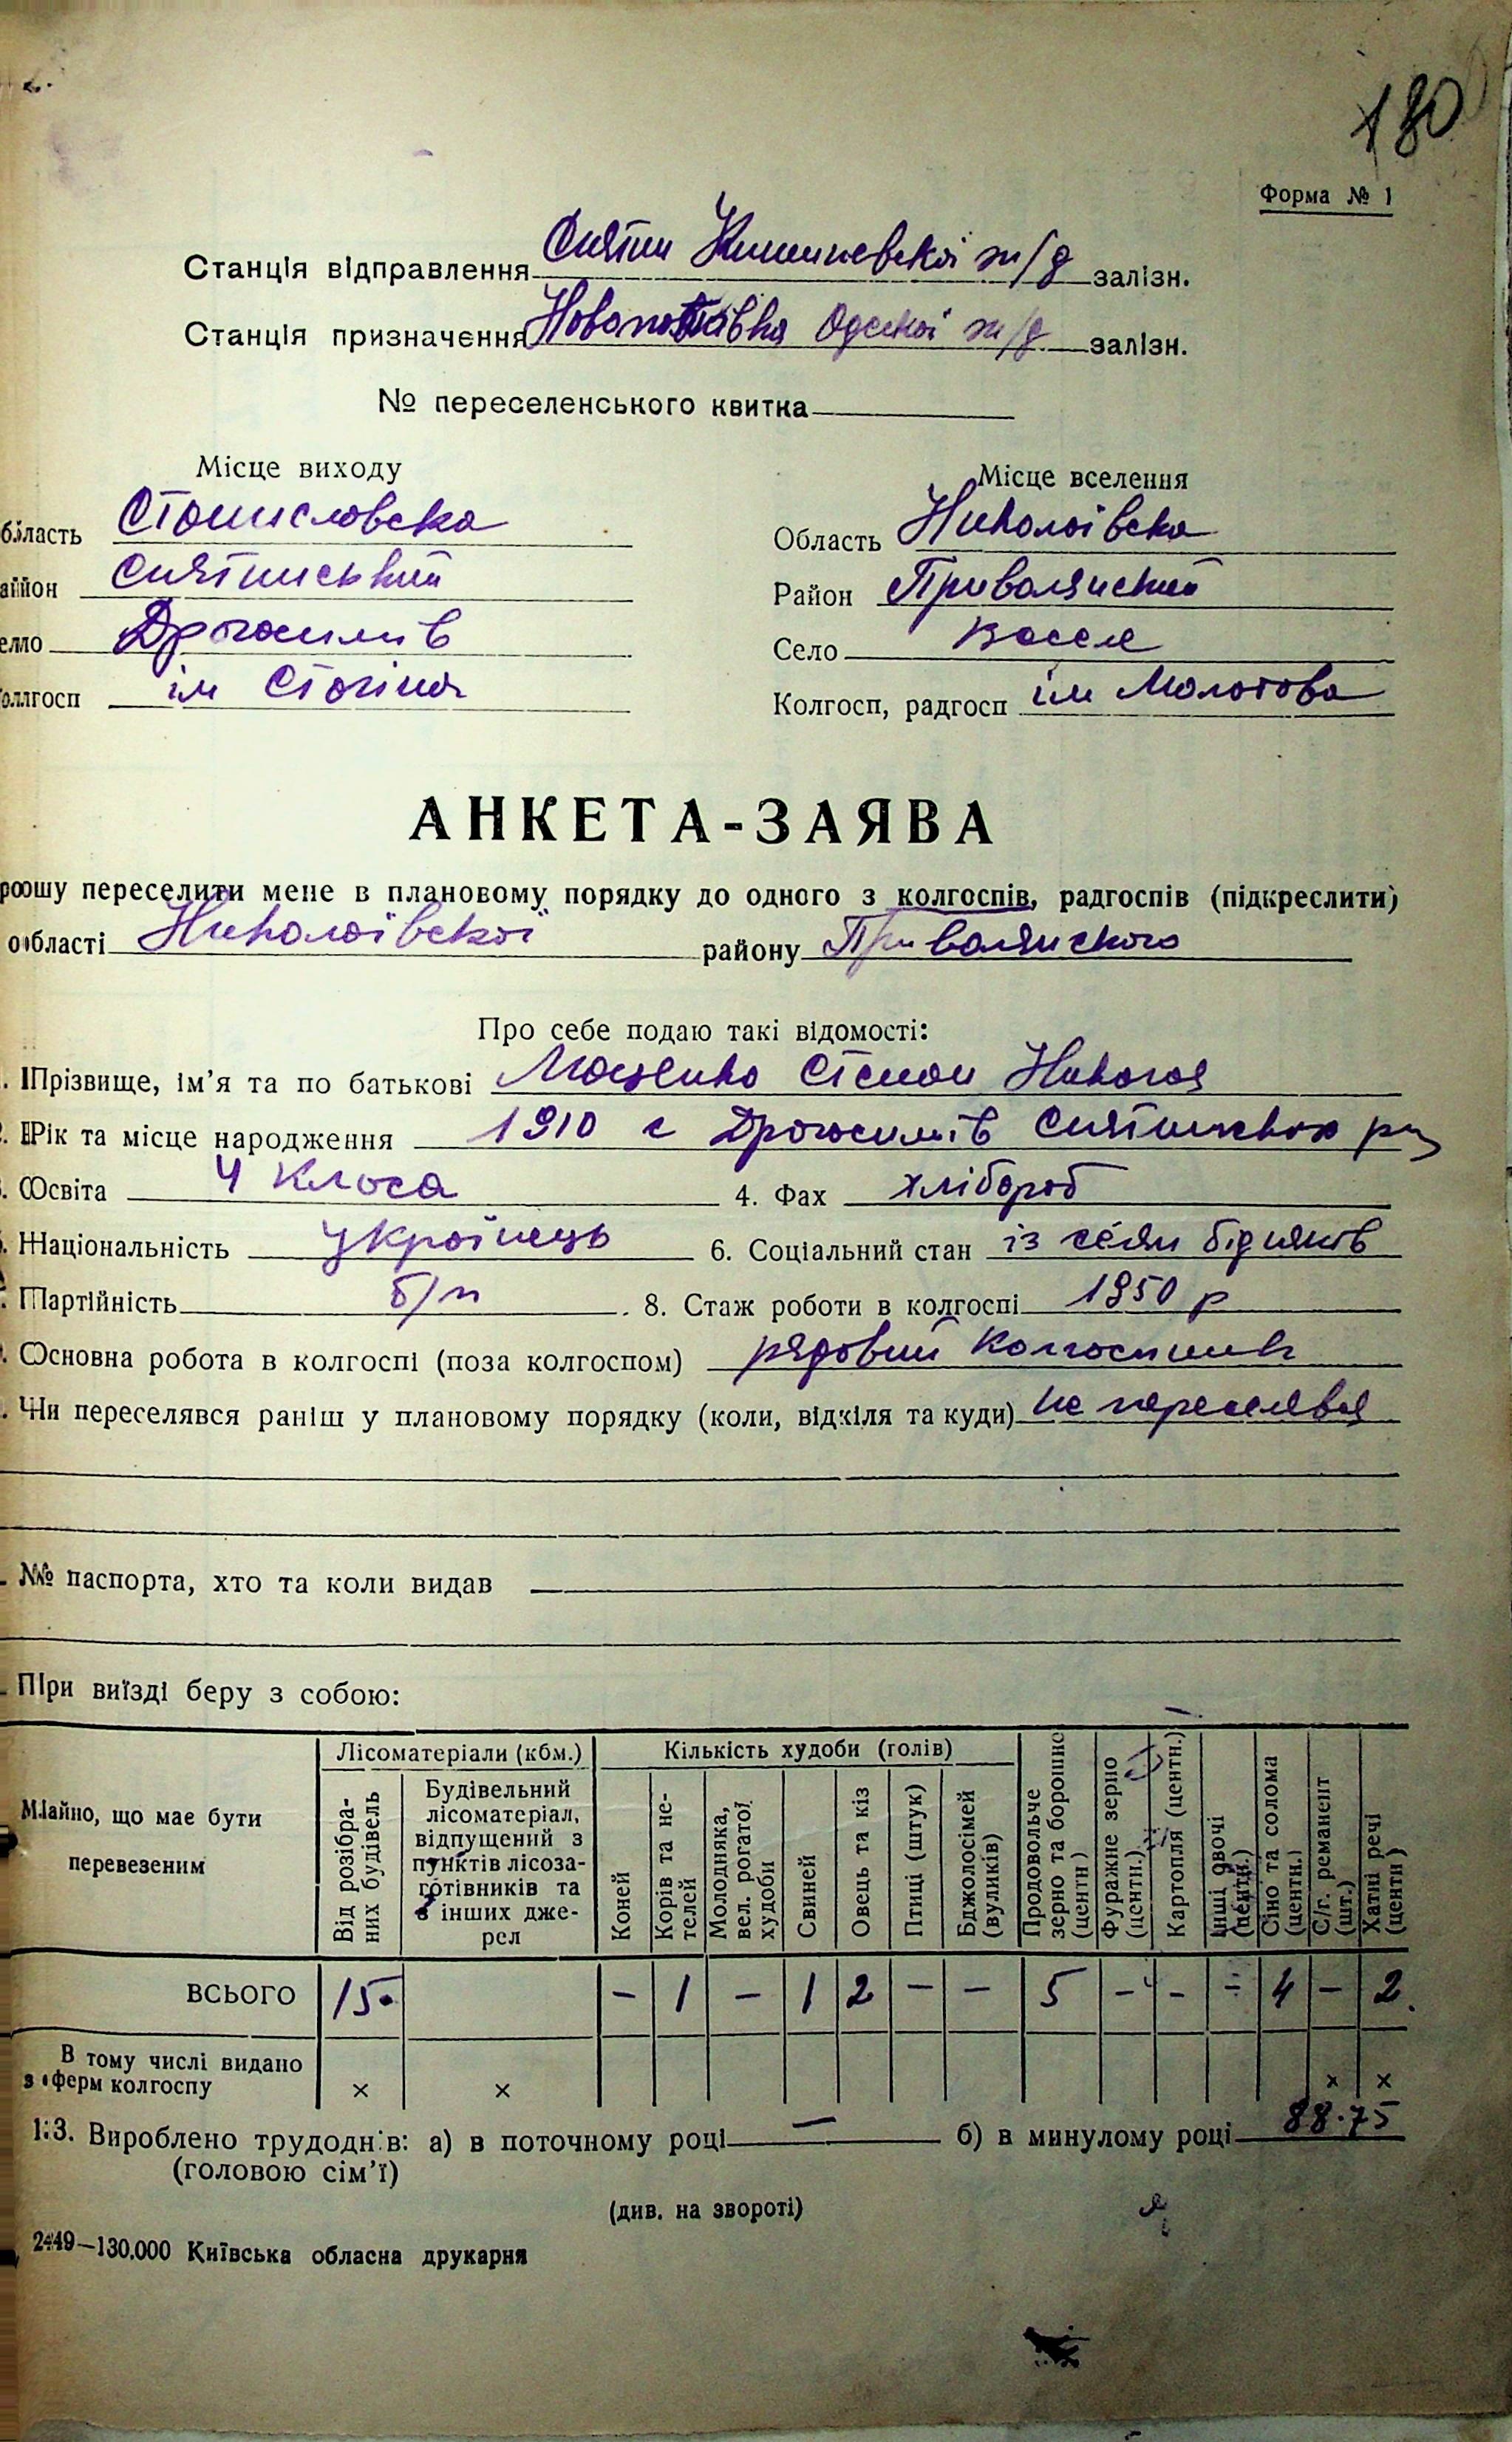 180
Форма № 1
Станція відправлення Снятин Кишиневської ж/д залізн.
Станція призначення Новополтавка Одеської ж/д залізн.
№ переселенського квитка
Місце виходу
Місце вселення
область Станиславська
Область Николаївська
район Снятинський
Район Привольянський
село Драгасимів
Село
колгосп ім Сталіна
Колгосп, радгосп ім Молотова
АНКЕТА-ЗАЯВА
рошу переселити мене в плановому порядку до одного з колгоспів, радгоспів (підкреслити)
області Николаївської району Привольянського
Про себе подаю такі відомості:
. Прізвище, ім’я та по батькові Моценко Степан Николая
. Рік та місце народження 1910 с Драгасимів Снятинського р-н
. Освіта 4 класа 4. Фах хлібороб
. Національність Українець 6. Соціальний стан із селян бідняків
. Партійність б/п . 8. Стаж роботи в колгоспі 1950 р
. Основна робота в колгоспі (поза колгоспом) рядовий колгоспник
. Чи переселявся раніш у плановому порядку (коли, відкіля та куди) не переселявся
. №№ паспорта, хто та коли видав
. При виїзді беру з собою:
Майно, що має бути перевезеним
Лісоматеріали (кбм.)
Від розібраних будівель
Будівельний лісоматеріал, відпущений з пунктів лісозаготівників та з інших джерел
Кількість худоби (голів)
Коней
Корів та нетелей
Молодняка, вел. рогатої худоби
Свиней
Овець та кіз
Птиці (штук)
Бджолосімей (вуликів)
Продовольче зерно та борошно (центн)
Фуражне зерно (центн.)
Картопля (центн.)
Інші овочі (центн.)
Сіно та солома (центн.)
С/г. реманент (шт.)
Хатні речі (центн)
ВСЬОГО 15 – 1 – 1 2 – – 5 – – – 4 – 2.
В тому числі видано з ферм колгоспу × × × ×
13. Вироблено трудоднів: а) в поточному році — б) в минулому році 88.75
(головою сім’ї)
(див. на звороті)
2449—130.000 Київська обласна друкарня